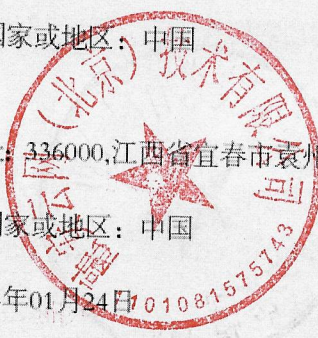 国家或地区：中国
：336000,江西省宜春市袁州
国家或地区：中国
年01月24日
云网（北京）技术有限公司
1101081575743